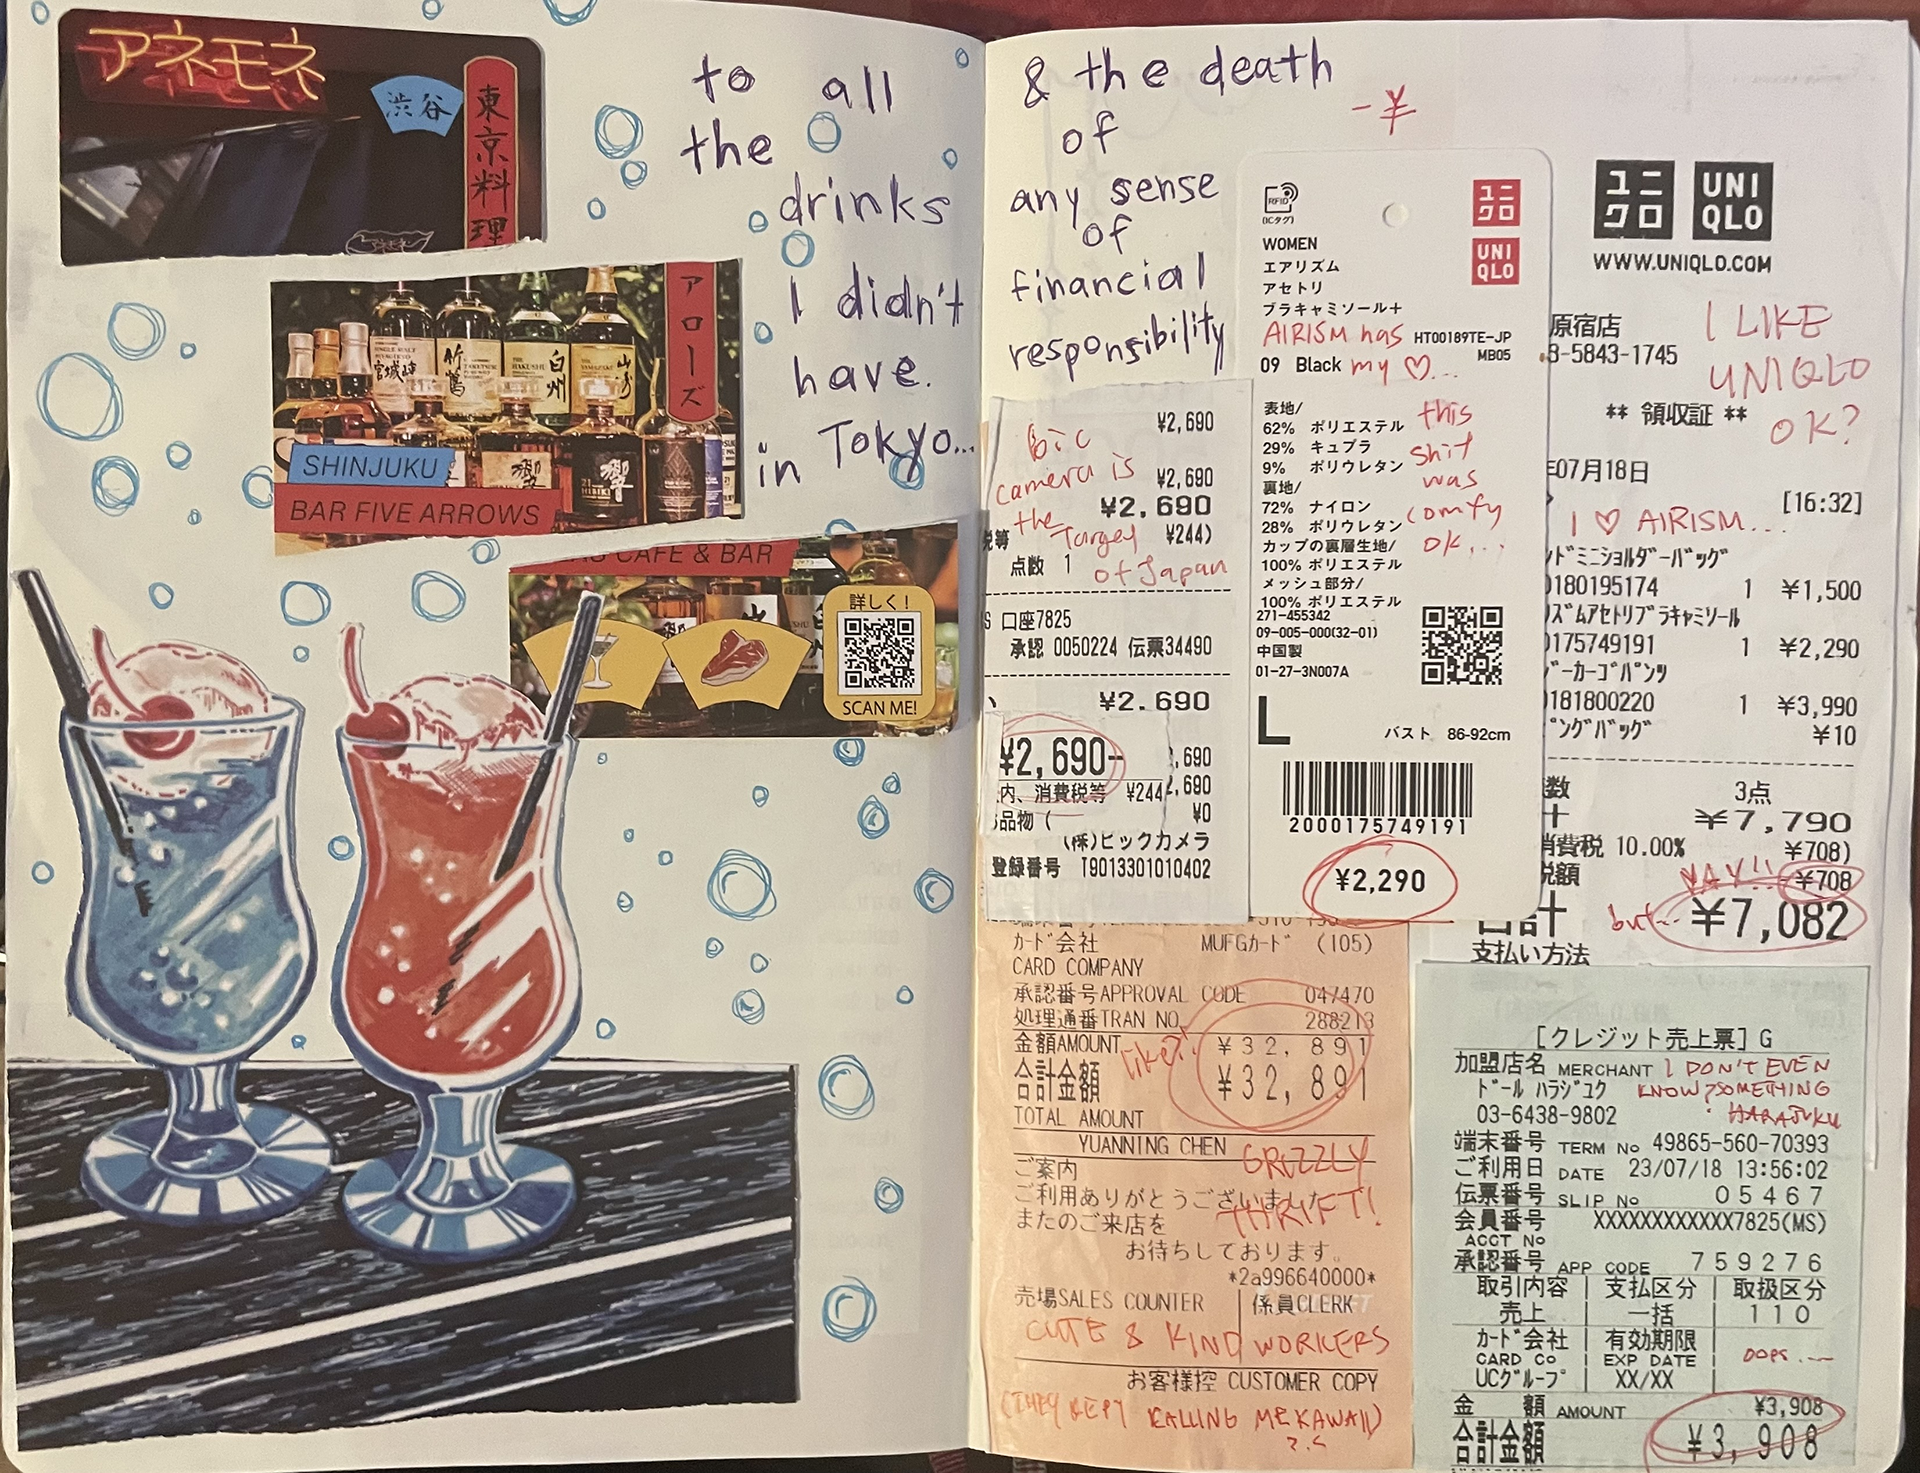 アネモネ
渋谷
東京料理
to all
the
drinks
I didn't
have.
in Tokyo...
アローズ
宮城峡
竹鶴
白州
山崎
響
21
HIBIKI
響
SHINJUKU
BAR FIVE ARROWS
CAFE & BAR
詳しく!
SCAN ME!
& the death
of
any sense
of
financial
responsibility
-¥
¥2,690
¥2,690
¥2,690
税等 ¥244)
点数 1
Bic
camera is
the Target
of Japan
口座7825
承認 0050224 伝票34490
¥2.690
¥2,690-
内、消費税等 ¥244
,690
,690
品物 (
¥0
(株)ビックカメラ
登録番号 T9013301010402
RFID
(ICタグ)
ユニクロ
UNIQLO
WOMEN
エアリズム
アセトリ
ブラキャミソール+
AIRISM has
my ♡...
HT00189TE-JP
MB05
09 Black
表地/
62% ポリエステル
29% キュプラ
9% ポリウレタン
裏地/
72% ナイロン
28% ポリウレタン
カップの裏層生地/
100% ポリエステル
メッシュ部分/
100% ポリエステル
this
shit
was
comfy
ok...
271-455342
09-005-000(32-01)
中国製
01-27-3N007A
L
バスト 86-92cm
2000175749191
¥2,290
ユニクロ
UNIQLO
WWW.UNIQLO.COM
原宿店
3-5843-1745
I LIKE
UNIQLO
OK?
** 領収証 **
年07月18日
[16:32]
I ♡ AIRISM...
ンドミニショルダーバッグ
0180195174 1 ¥1,500
リズムアセトリブラキャミソール
0175749191 1 ¥2,290
ジーカーゴパンツ
0181800220 1 ¥3,990
ピングバッグ ¥10
数 3点
¥7,790
消費税 10.00% ¥708)
税額 ¥708
YAY!!
but...
合計 ¥7,082
支払い方法
カード会社 MUFGカード (105)
CARD COMPANY
承認番号APPROVAL CODE 047470
処理通番TRAN NO. 288213
金額AMOUNT ¥32,891
合計金額 ¥32,891
TOTAL AMOUNT
like??
YUANNING CHEN
GRIZZLY
THRIFT!
ご案内
ご利用ありがとうございました
またのご来店を
お待ちしております。
*2a996640000*
売場SALES COUNTER 係員CLERK
CUTE & KIND WORKERS
お客様控 CUSTOMER COPY
(THEY KEPT CALLING ME KAWAII)
[クレジット売上票]G
加盟店名 MERCHANT
ドール ハラジュク
03-6438-9802
I DON'T EVEN
KNOW? SOMETHING
HARAJUKU
端末番号 TERM No 49865-560-70393
ご利用日 DATE 23/07/18 13:56:02
伝票番号 SLIP No 05467
会員番号 XXXXXXXXXXXX7825(MS)
ACCT No
承認番号 APP CODE 759276
取引内容 支払区分 取扱区分
売上 一括 110
カード会社 有効期限
CARD CO EXP DATE
UCグループ XX/XX
oops...
金額 AMOUNT ¥3,908
合計金額 ¥3,908